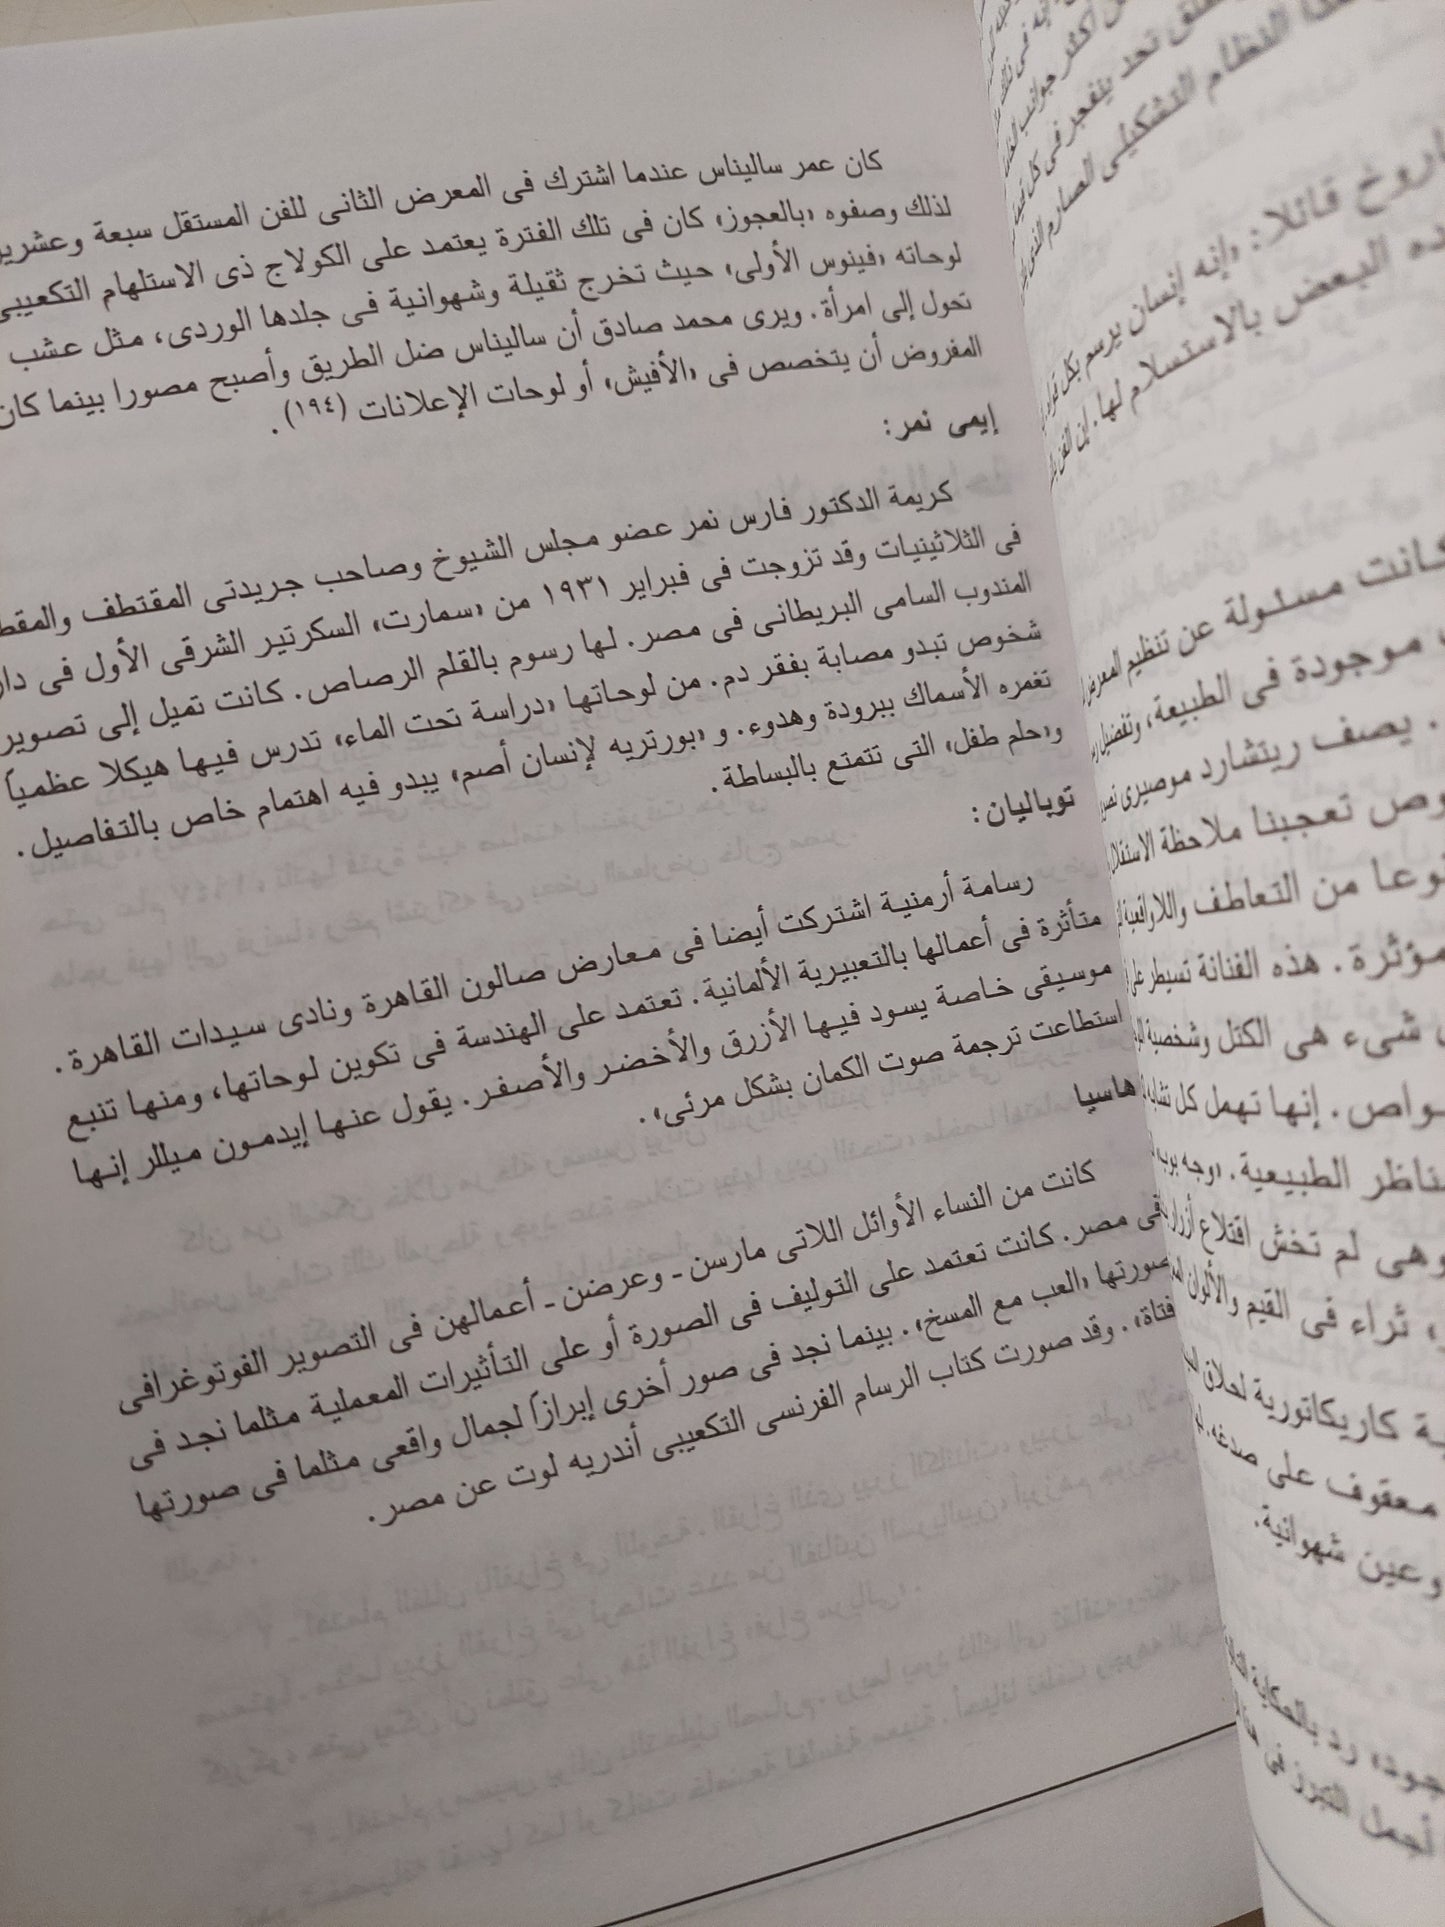 كان عمر ساليناس عندما اشترك فى المعرض الثانى للفن المستقل سبعة وعشرين
لذلك وصفوه «بالعجوز» كان فى تلك الفترة يعتمد على الكولاج ذى الاستلهام التكعيبى
لوحاته «فينوس الأولى» حيث تخرج ثقيلة وشهوانية فى جلدها الوردى، مثل عشب
تحول إلى امرأة. ويرى محمد صادق أن ساليناس ضل الطريق وأصبح مصورا بينما كان
المفروض أن يتخصص فى «الأفيش» أو لوحات الإعلانات (١٩٤).
إيمى نمر:
كريمة الدكتور فارس نمر عضو مجلس الشيوخ وصاحب جريدتى المقتطف
فى الثلاثينيات وقد تزوجت فى فبراير ١٩٣١ من «سمارت» السكرتير الشرقى الأول فى دار
المندوب السامى البريطانى فى مصر. لها رسوم بالقلم الرصاص. كانت تميل إلى تصوير
شخوص تبدو مصابة بفقر دم. من لوحاتها «دراسة تحت الماء» تدرس فيها هيكلا عظمياً
تغمره الأسماك ببرودة وهدوء. و «بورتريه لإنسان أصم» يبدو فيه اهتمام خاص بالتفاصيل.
و«حلم طفل» التى تتمتع بالبساطة.
توباليان:
رسامة أرمنية اشتركت أيضا فى معارض صالون القاهرة ونادى سيدات القاهرة.
متأثرة فى أعمالها بالتعبيرية الألمانية. تعتمد على الهندسة فى تكوين لوحاتها، ومنها تنبع
موسيقى خاصة يسود فيها الأزرق والأخضر والأصفر. يقول عنها إيدمون ميللر إنها
استطاعت ترجمة صوت الكمان بشكل مرئى».
هاسيا
كانت من النساء الأوائل اللاتى مارسن ـ وعرضن ـ أعمالهن فى التصوير الفوتوغرافى
فى مصر. كانت تعتمد على التوليف فى الصورة أو على التأثيرات المعملية مثلما نجد فى
صورتها «العب مع المسخ». بينما نجد فى صور أخرى إبرازاً لجمال واقعى مثلما فى صورتها
فتاة». وقد صورت كتاب الرسام الفرنسى التكعيبى أندريه لوت عن مصر.
النظام التشكيلى الصارم
قائلا: «إنه إنسان يرسم بكل
البعض بالاستسلام لها. إن الفن
كانت مسئولة عن تنظيم المعرض
موجودة فى الطبيعة، وتفضل
. يصف ريتشارد موصيرى
تعجبنا ملاحظة الاستقلال
نوعا من التعاطف واللاواقعية
مؤثرة. هذه الفنانة تسيطر على
شىء هى الكتل وشخصية
إنها تهمل كل
الطبيعية. «وجه
وهى لم تخش اقتلاع أزرار
، ثراء فى القيم والألوان
كاريكاتورية لحلاق
معقوف على صدغه.
وعين شهوانية.
رد بالحكاية
أجمل